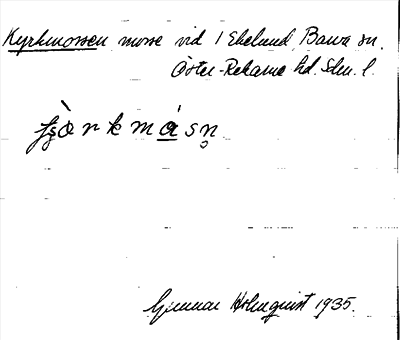 Kyrkmossen mosse vid 1 Ekelund, Barva sn.
Öster-Rekarne hd. Sdm. l.
Gunnar Holmquist 1935.